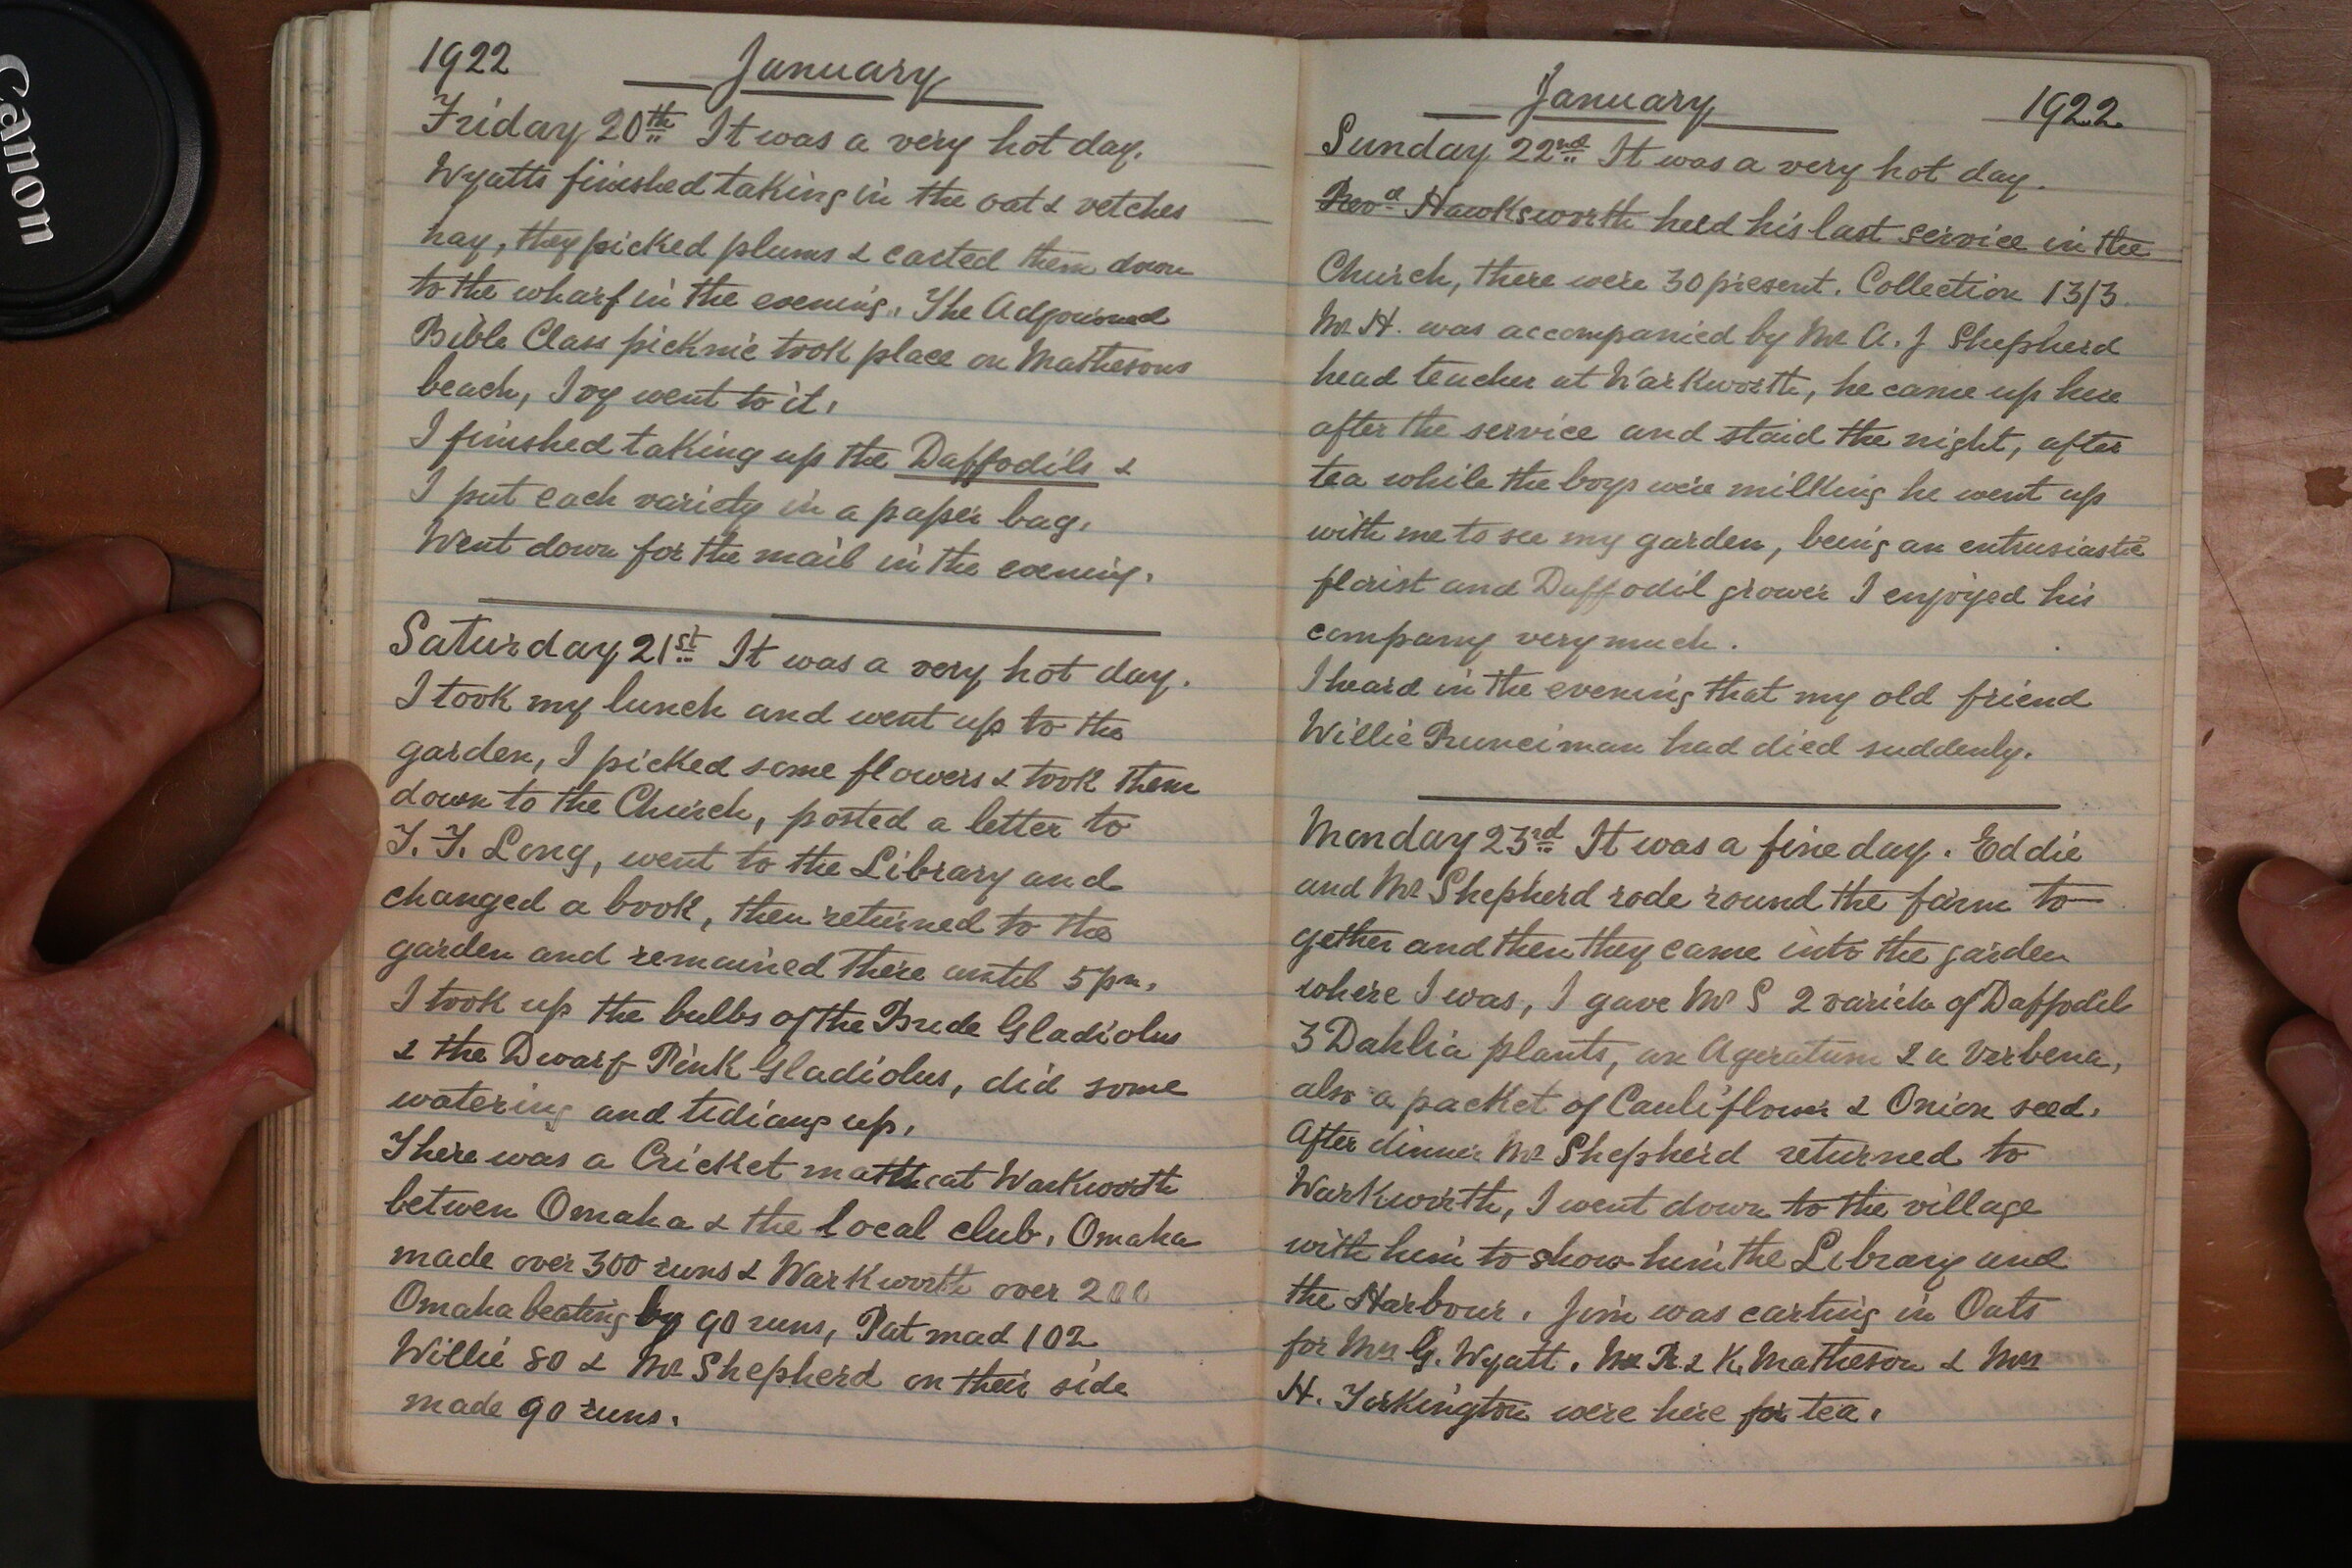 Canon
1922 January
Friday 20th It was a very hot day.
Wyatts finished taking in the oat & vetches
hay, they picked plums & carted them down
to the wharf in the evening. The Adjourned
Bible Class picknic took place on Mathesons
beach, Ivy went to it.
I finished taking up the Daffodils &
I put each variety in a paper bag.
Went down for the mail in the evening.
Saturday 21st It was a very hot day.
I took my lunch and went up to the
garden, I picked some flowers & took them
down to the Church, posted a letter to
T. T. Long, went to the Library and
changed a book, then returned to the
garden and remained there until 5 pm.
I took up the bulbs of the Bride Gladiolus
& the Dwarf Pink Gladiolus, did some
watering and tidiang up.
There was a Cricket match at Warkworth
betwen Omaha & the local club. Omaha
made over 300 runs & Warkworth over 200
Omaha beating by 90 runs, Pat mad 102
Willie 80 & Mr Shepherd on their side
made 90 runs.
January 1922
Sunday 22nd It was a very hot day.
Revd Hawksworth held his last service in the
Church, there were 30 present. Collection 13/3.
Mr H. was accompanied by Mr A. J Shepherd
head teacher at Warkworth, he came up here
after the service and staid the night, after
tea while the boys were milking he went up
with me to see my garden, being an enthusiastic
florist and Daffodil grower I enjoyed his
company very much.
I heard in the evening that my old friend
Willie Runciman had died suddenly.
Monday 23rd It was a fine day. Eddie
and Mr Shepherd rode round the farm to-
gether and then they came into the garden
where I was, I gave Mr S 2 varieties of Daffodil
3 Dahlia plants, an Ageratum & a Verbena,
also a packet of Cauliflower & Onion seed.
After dinner Mr Shepherd returned to
Warkworth, I went down to the village
with him to show him the Library and
the Harbour. Jim was carting in Oats
for Mrs G. Wyatt. R & K. Matheson & Mrs
H. Torkington were here for tea.